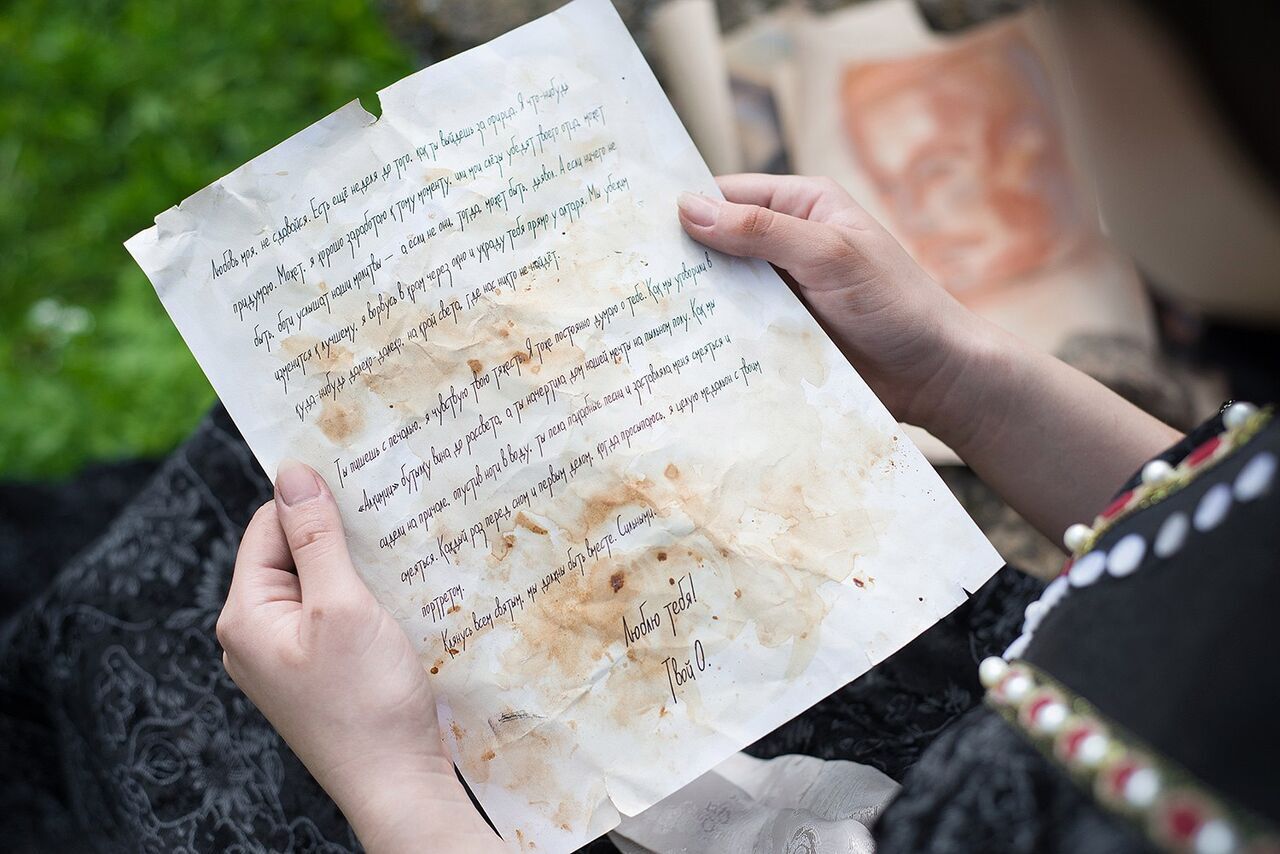 Любовь моя, не сдавайся. Есть ещё неделя до того, как ты выйдешь за офицера. Я что-нибудь
придумаю. Может, я хорошо заработаю к тому моменту, или мои слёзы убедят твоего отца, может
быть, боги услышат наши молитвы – а если не они, тогда, может быть, дьявол. А если ничего не
изменится к лучшему, я ворвусь в храм через окно и украду тебя прямо у алтаря. Мы убежим
куда-нибудь далеко-далеко, на край света, где нас никто не найдёт.
Ты пишешь с печалью, я чувствую твою тяжесть. Я тоже постоянно думаю о тебе. Как мы уговорили в
«Алкимии» бутылку вина до рассвета, а ты начертила дом нашей мечты на пыльном полу. Как мы
сидели на причале, опустив ноги в воду, ты пела похабные песни и заставляла меня смеяться и
смеяться. Каждый раз перед сном и первым делом, когда просыпаюсь, я целую медальон с твоим
портретом.
Клянусь всем святым, мы должны быть вместе. Сильными.
Люблю тебя!
Твой О.